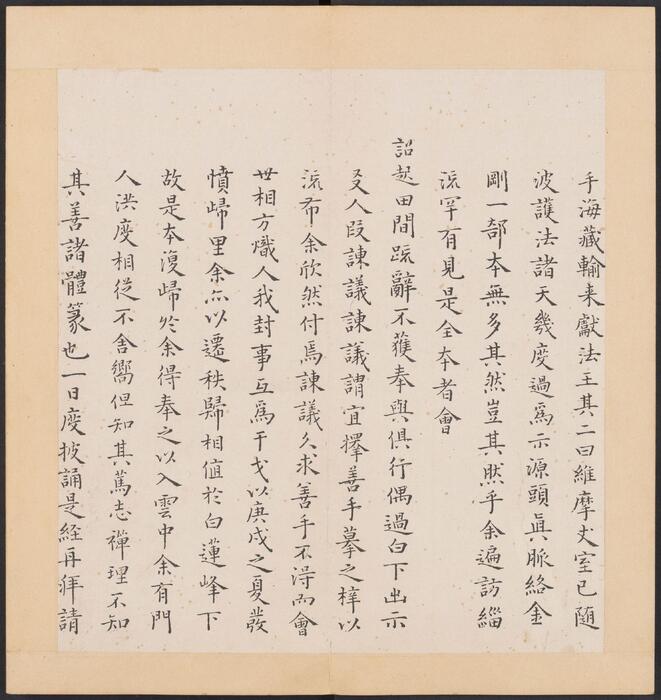 手海藏輸来獻法王其二曰維摩丈室已随
波護法諸天幾度過爲示源頭眞脈絡金
剛一部本無多其然豈其然乎余遍訪緇
流罕有見是全本者會
詔起田間䟽辭不獲奉與俱行偶過白下出示
友人段諫議諫議謂宜擇善手摹之梓以
流布余欣然付焉諫議久求善手不淂而會
世相方熾人我封事互爲干戈以庚戌之夏發
憤歸里余亦以遷秩歸相值於白蓮峰下
故是本復歸於余得奉之以入雲中余有門
人洪度相從不舍嚮但知其篤志禪理不知
其善諸體篆也一日度披誦是経再拜請